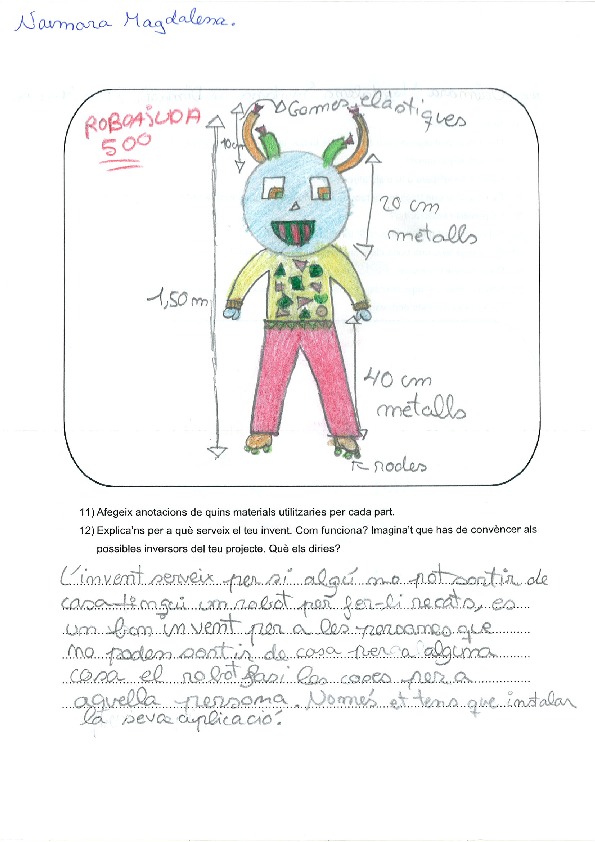 Naemara Magdalena.
ROBOAJUDA
500
Gomes elàstiques
10cm
20 cm
metalls
1,50 m
40 cm
metalls
rodes
11) Afegeix anotacions de quins materials utilitzaries per cada part.
12) Explica'ns per a què serveix el teu invent. Com funciona? Imagina't que has de convèncer als
possibles inversors del teu projecte. Què els diries?
L'invent serveix per si algú no pot sortir de
casa tingui un robot per fer-li recats, es
un bon invent per a les persones que
no poden sortir de casa per a alguna
cosa el robot fasi las coses per a
aquella persona. Només et tens que instalar
la seva aplicació.